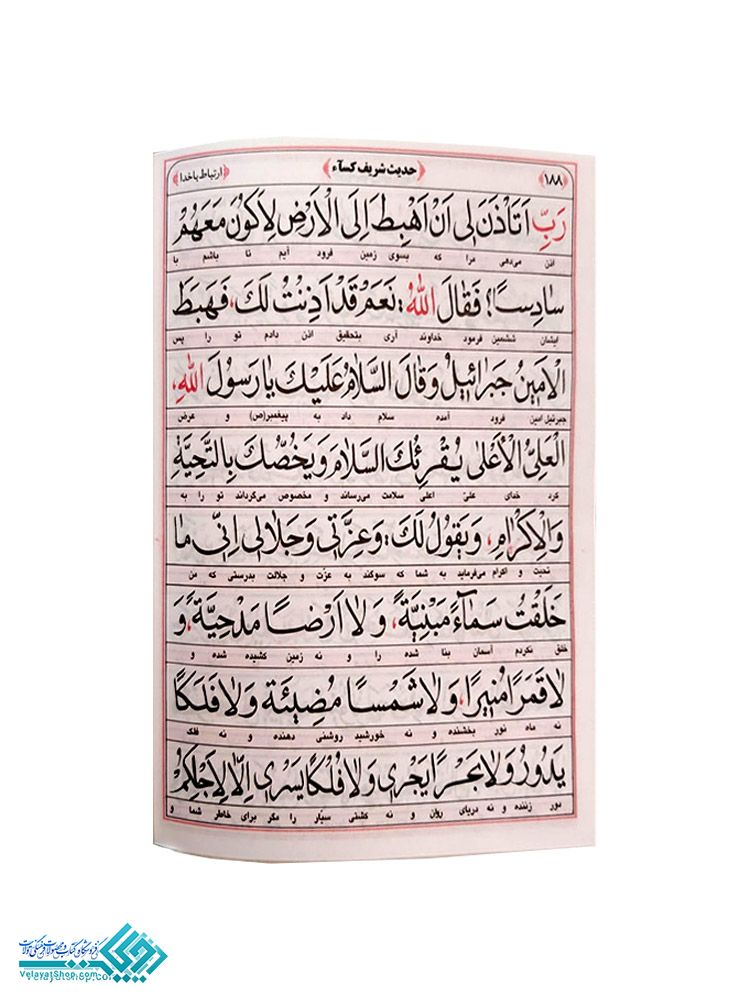 ﴿۱۸۸﴾ ﴿حدیث شریف کسآء﴾ ﴿ارتباط با خدا﴾
رَبِّ اَتَاْذَنُ لی اَنْ اَهْبِطَ اِلَی الْاَرْضِ لِاَکُونَ مَعَهُمْ
اذن می‌دهی مرا که بسوی زمین فرود آیم تا باشم با
سادِسًا؟ فَقالَ اللهُ: نَعَمْ قَدْ اَذِنْتُ لَکَ، فَهَبَطَ
ایشان ششمین فرمود خداوند آری بتحقیق اذن دادم تو را پس
الْاَمینُ جَبْرائیلُ وَقالَ السَّلامُ عَلَیْکَ یا رَسُولَ اللهِ،
جبرئیل امین فرود آمده سلام داد به پیغمبر(ص) و عرض
الْعَلِیُّ الْاَعْلی یُقْرِئُکَ السَّلامَ وَیَخُصُّکَ بِالتَّحِیَّةِ
کرد خدای علیّ اعلی سلامت می‌رساند و مخصوص می‌گرداند تو را به
وَالْاِکْرامِ، وَیَقُولُ لَکَ: وَعِزَّتی وَجَلالی اِنّی ما
تحیت و اکرام می‌فرماید به شما که سوگند به عزّت و جلالت بدرستی که من
خَلَقْتُ سَمآءً مَبْنِیَّةً، وَلا اَرْضًا مَدْحِیَّةً، وَ
خلق نکردم آسمان بنا شده را و نه زمین کشیده شده و
لا قَمَرًا مُنیرًا، وَلا شَمْسًا مُضِیئَةً وَلا فَلَکًا
نه ماه نور بخشنده و نه خورشید روشنی دهنده و نه فلک
یَدُورُ وَلا بَحْرًا یَجْری وَلا فُلْکًا یَسْری اِلّا لِاَجْلِکُمْ
دور زننده و نه دریای روان و نه کشتی سیّار را مگر برای خاطر شما و
فروشگاه کتاب و محصولات فرهنگی ولایت
VelayatShop.com
Velayatshop.com